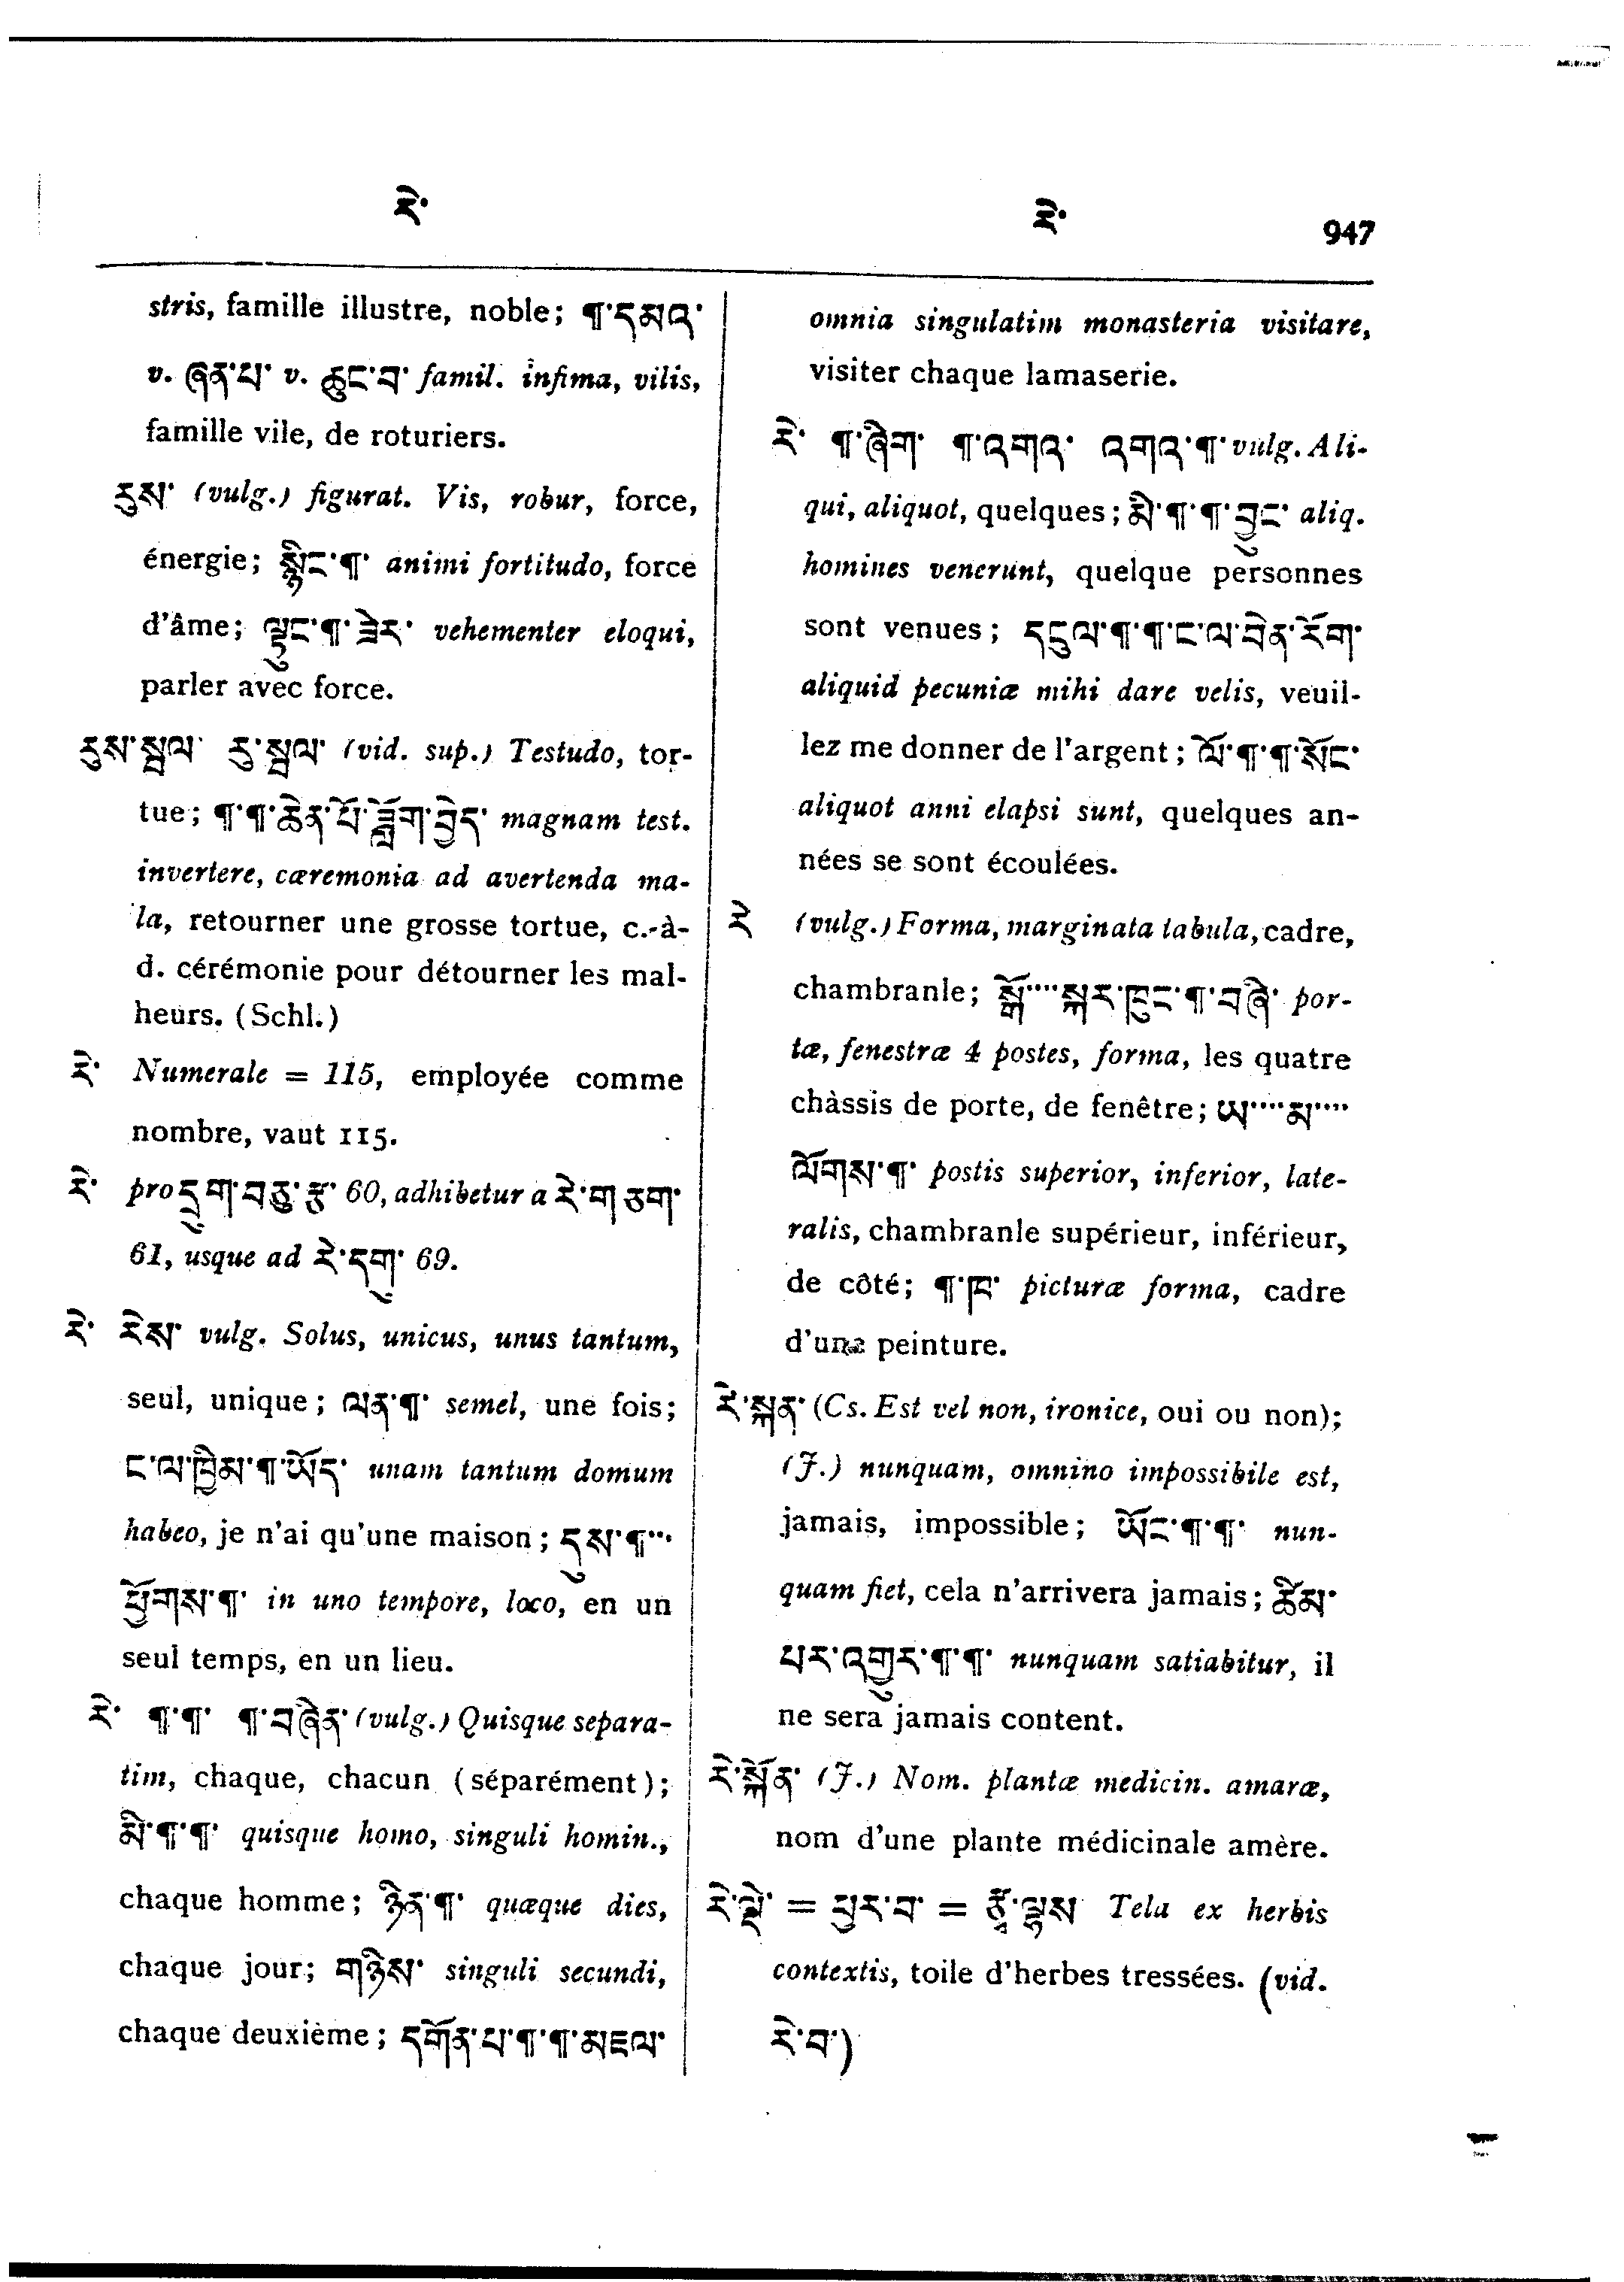 རེ་ རེ་ 947
stris, famille illustre, noble; ¶་དམའ་
v. ཞན་པ་ v. ཆུང་བ་ famil. infima, vilis,
famille vile, de roturiers.
རུས་ (vulg.) figurat. Vis, robur, force,
énergie; སྙིང་¶་ animi fortitudo, force
d'âme; ¶་ཟེར་ vehementer eloqui,
parler avec force.
རུས་སྦལ་ རུ་སྦལ་ (vid. sup.) Testudo, tor-
tue; ¶་¶་ཆེན་པོ་ཟློག་བྱེད་ magnam test.
invertere, cæremonia ad avertenda ma-
la, retourner une grosse tortue, c.-à-
d. cérémonie pour détourner les mal-
heurs. (Schl.)
རེ་ Numerale = 115, employée comme
nombre, vaut 115.
རེ་ pro དྲུག་བཅུ་རྩ་ 60, adhibetur a རེ་གཅག་
61, usque ad རེ་དགུ་ 69.
རེ་ རེས་ vulg. Solus, unicus, unus tantum,
seul, unique; ལན་¶་ semel, une fois;
ང་ལ་ཁྱིམ་¶་ཡོད་ unam tantum domum
habeo, je n'ai qu'une maison; དུས་¶་···
ཕྱོགས་¶་ in uno tempore, loco, en un
seul temps, en un lieu.
རེ་ ¶་¶་ ¶་བཞིན་ (vulg.) Quisque separa-
tim, chaque, chacun (séparément);
མི་¶་¶་ quisque homo, singuli homin.,
chaque homme; ཉིན་¶་ quæque dies,
chaque jour; གཉིས་ singuli secundi,
chaque deuxième; དགོན་པ་¶་¶་མཇལ་
omnia singulatim monasteria visitare,
visiter chaque lamaserie.
རེ་ ¶་ཞིག་ ¶་འགའ་ འགའ་¶་ vulg. Ali-
qui, aliquot, quelques; མི་¶་¶་བྱུང་ aliq.
homines venerunt, quelque personnes
sont venues; དངུལ་¶་¶་ང་ལ་བིན་རོག་
aliquid pecuniæ mihi dare velis, veuil-
lez me donner de l'argent; ལོ་¶་¶་སོང་
aliquot anni elapsi sunt, quelques an-
nées se sont écoulées.
རེ (vulg.) Forma, marginata tabula, cadre,
chambranle; སྒོ་····སྐར་ཁུང་¶་བཞི་ por-
tæ, fenestræ 4 postes, forma, les quatre
chàssis de porte, de fenêtre; ཡ་····མ་····
ལོགས་¶་ postis superior, inferior, late-
ralis, chambranle supérieur, inférieur,
de côté; ¶་ཁྲ་ picturæ forma, cadre
d'une peinture.
རེ་སྐན་ (Cs. Est vel non, ironice, oui ou non);
(J.) nunquam, omnino impossibile est,
jamais, impossible; ཡོང་¶་¶་ nun-
quam fiet, cela n'arrivera jamais; ཚིམ་
པར་འགྱུར་¶་¶་ nunquam satiabitur, il
ne sera jamais content.
རེ་སྐོན་ (J.) Nom. plantæ medicin. amaræ,
nom d'une plante médicinale amère.
རེ་ལྡེ་ = ཕྱར་བ་ = རྩྭ་ལྷས Tela ex herbis
contextis, toile d'herbes tressées. (vid.
རེ་བ་)